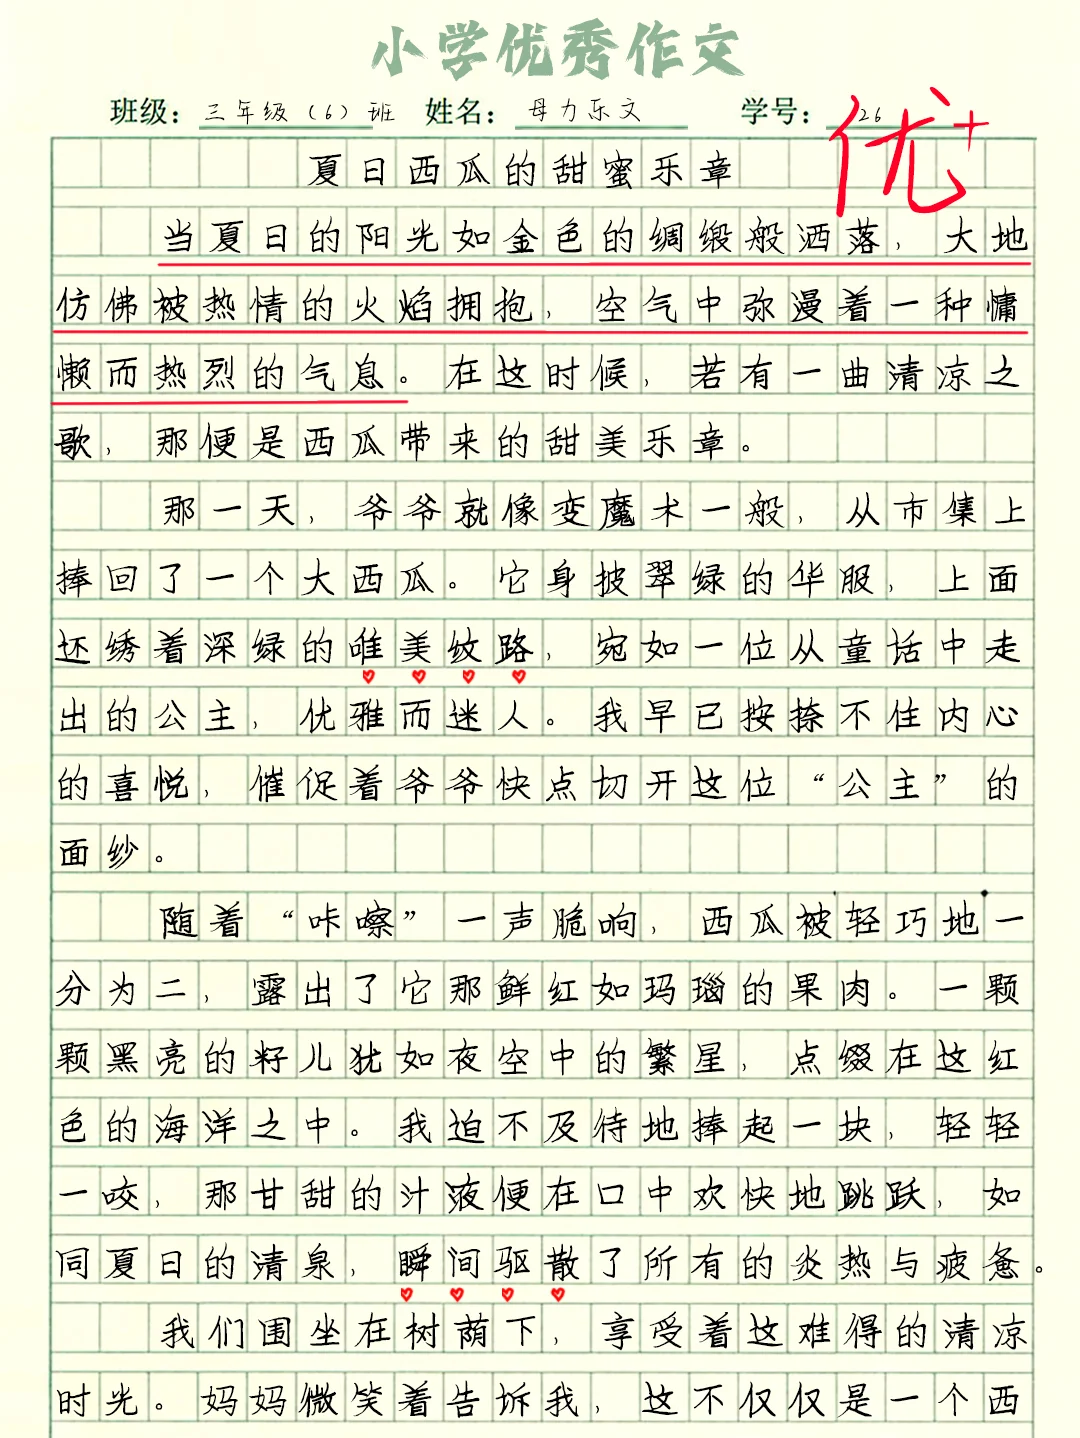 小学优秀作文
班级：三年级（6）班 姓名：母力乐文 学号：26
优+
夏日西瓜的甜蜜乐章
当夏日的阳光如金色的绸缎般洒落，大地
仿佛被热情的火焰拥抱，空气中弥漫着一种慵
懒而热烈的气息。在这时候，若有一曲清凉之
歌，那便是西瓜带来的甜美乐章。
那一天，爷爷就像变魔术一般，从市集上
捧回了一个大西瓜。它身披翠绿的华服，上面
还绣着深绿的唯美纹路，宛如一位从童话中走
出的公主，优雅而迷人。我早已按捺不住内心
的喜悦，催促着爷爷快点切开这位“公主”的
面纱。
随着“咔嚓”一声脆响，西瓜被轻巧地一
分为二，露出了它那鲜红如玛瑙的果肉。一颗
颗黑亮的籽儿犹如夜空中的繁星，点缀在这红
色的海洋之中。我迫不及待地捧起一块，轻轻
一咬，那甘甜的汁液便在口中欢快地跳跃，如
同夏日的清泉，瞬间驱散了所有的炎热与疲惫。
我们围坐在树荫下，享受着这难得的清凉
时光。妈妈微笑着告诉我，这不仅仅是一个西